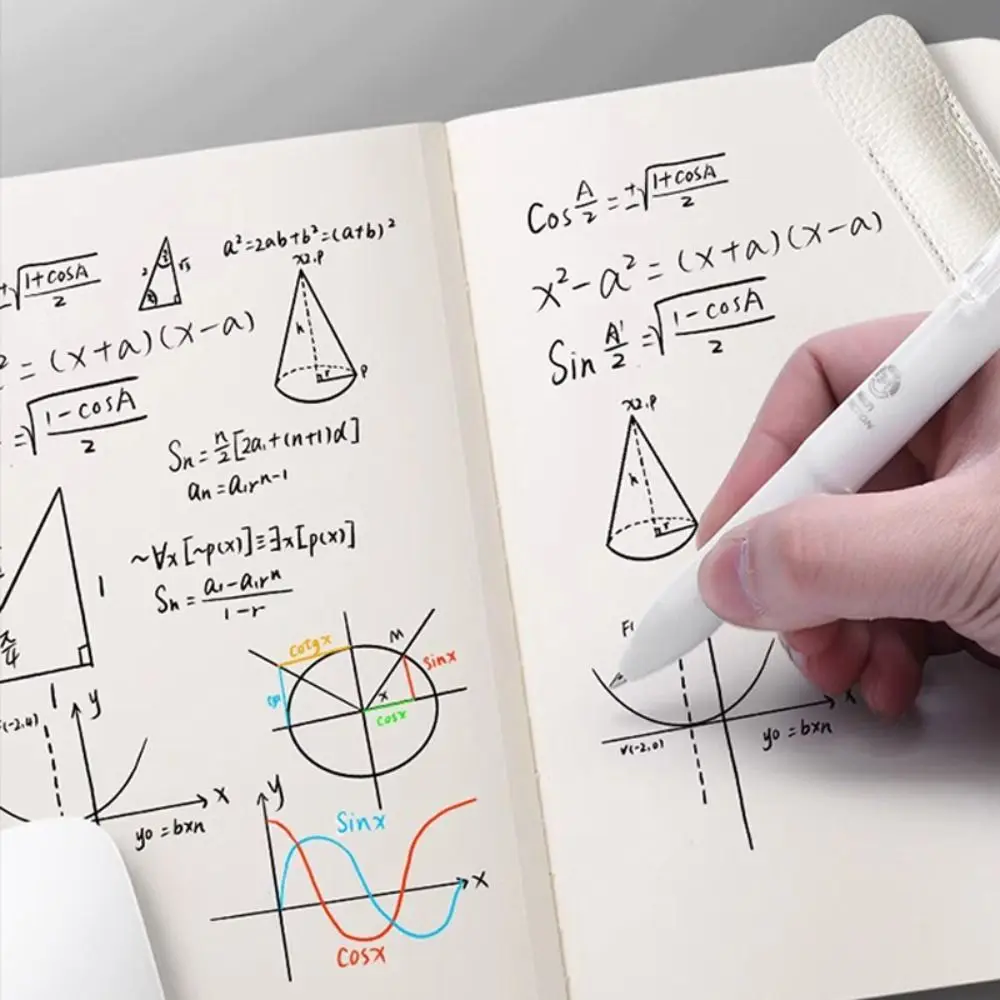 ±√(1+cosA)/2
a²=2ab+b²=(a+b)²
2 √3
x2,P
h
r P
² = (x+a)(x-a)
=√(1-cosA)/2
Sn=n/2[2a₁+(n+1)d]
an=a₁rⁿ⁻¹
~∀x[~p(x)]≡∃x[p(x)]
Sn=(a₁-a₁rⁿ)/(1-r)
1
π/4
1
y
x
y0=bxn
cotgx
M
sinx
x
cosx
y
Sinx
x
Cosx
Cos A/2=±√(1+cosA)/2
x²-a²=(x+a)(x-a)
Sin A/2=√(1-cosA)/2
x2,P
h
r
F
x
V(-2,0)
y0=bxn